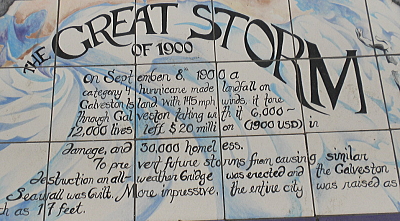 THE GREAT STORM
OF 1900
on September 8th, 1900 a
category 4 hurricane made landfall on
Galveston Island. With 145 mph winds, it tore
through Galveston taking with it 6,000 -
12,000 lives left $20 million (1900 USD) in
damage, and 30,000 homeless.
To prevent future storms from causing similar
destruction an all-weather bridge was erected and the Galveston
Seawall was built. More impressive, the entire city was raised as
much as 17 feet.